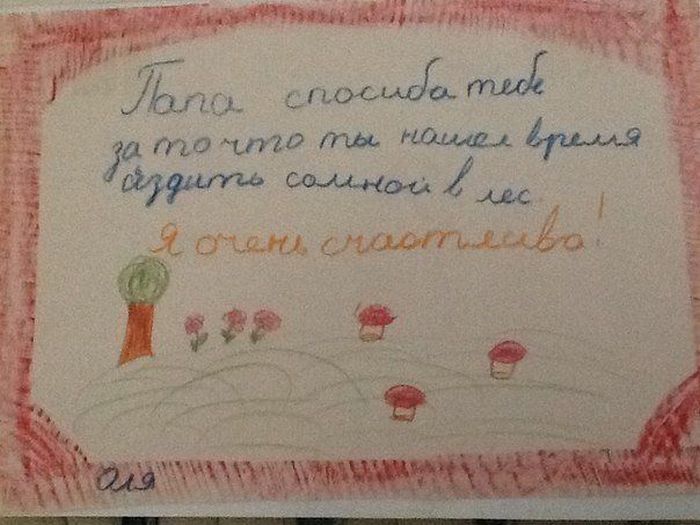 Папа способа тебе
за то что ты нашел время
яздить сомной в лес
Я очень счастлива!
Оля